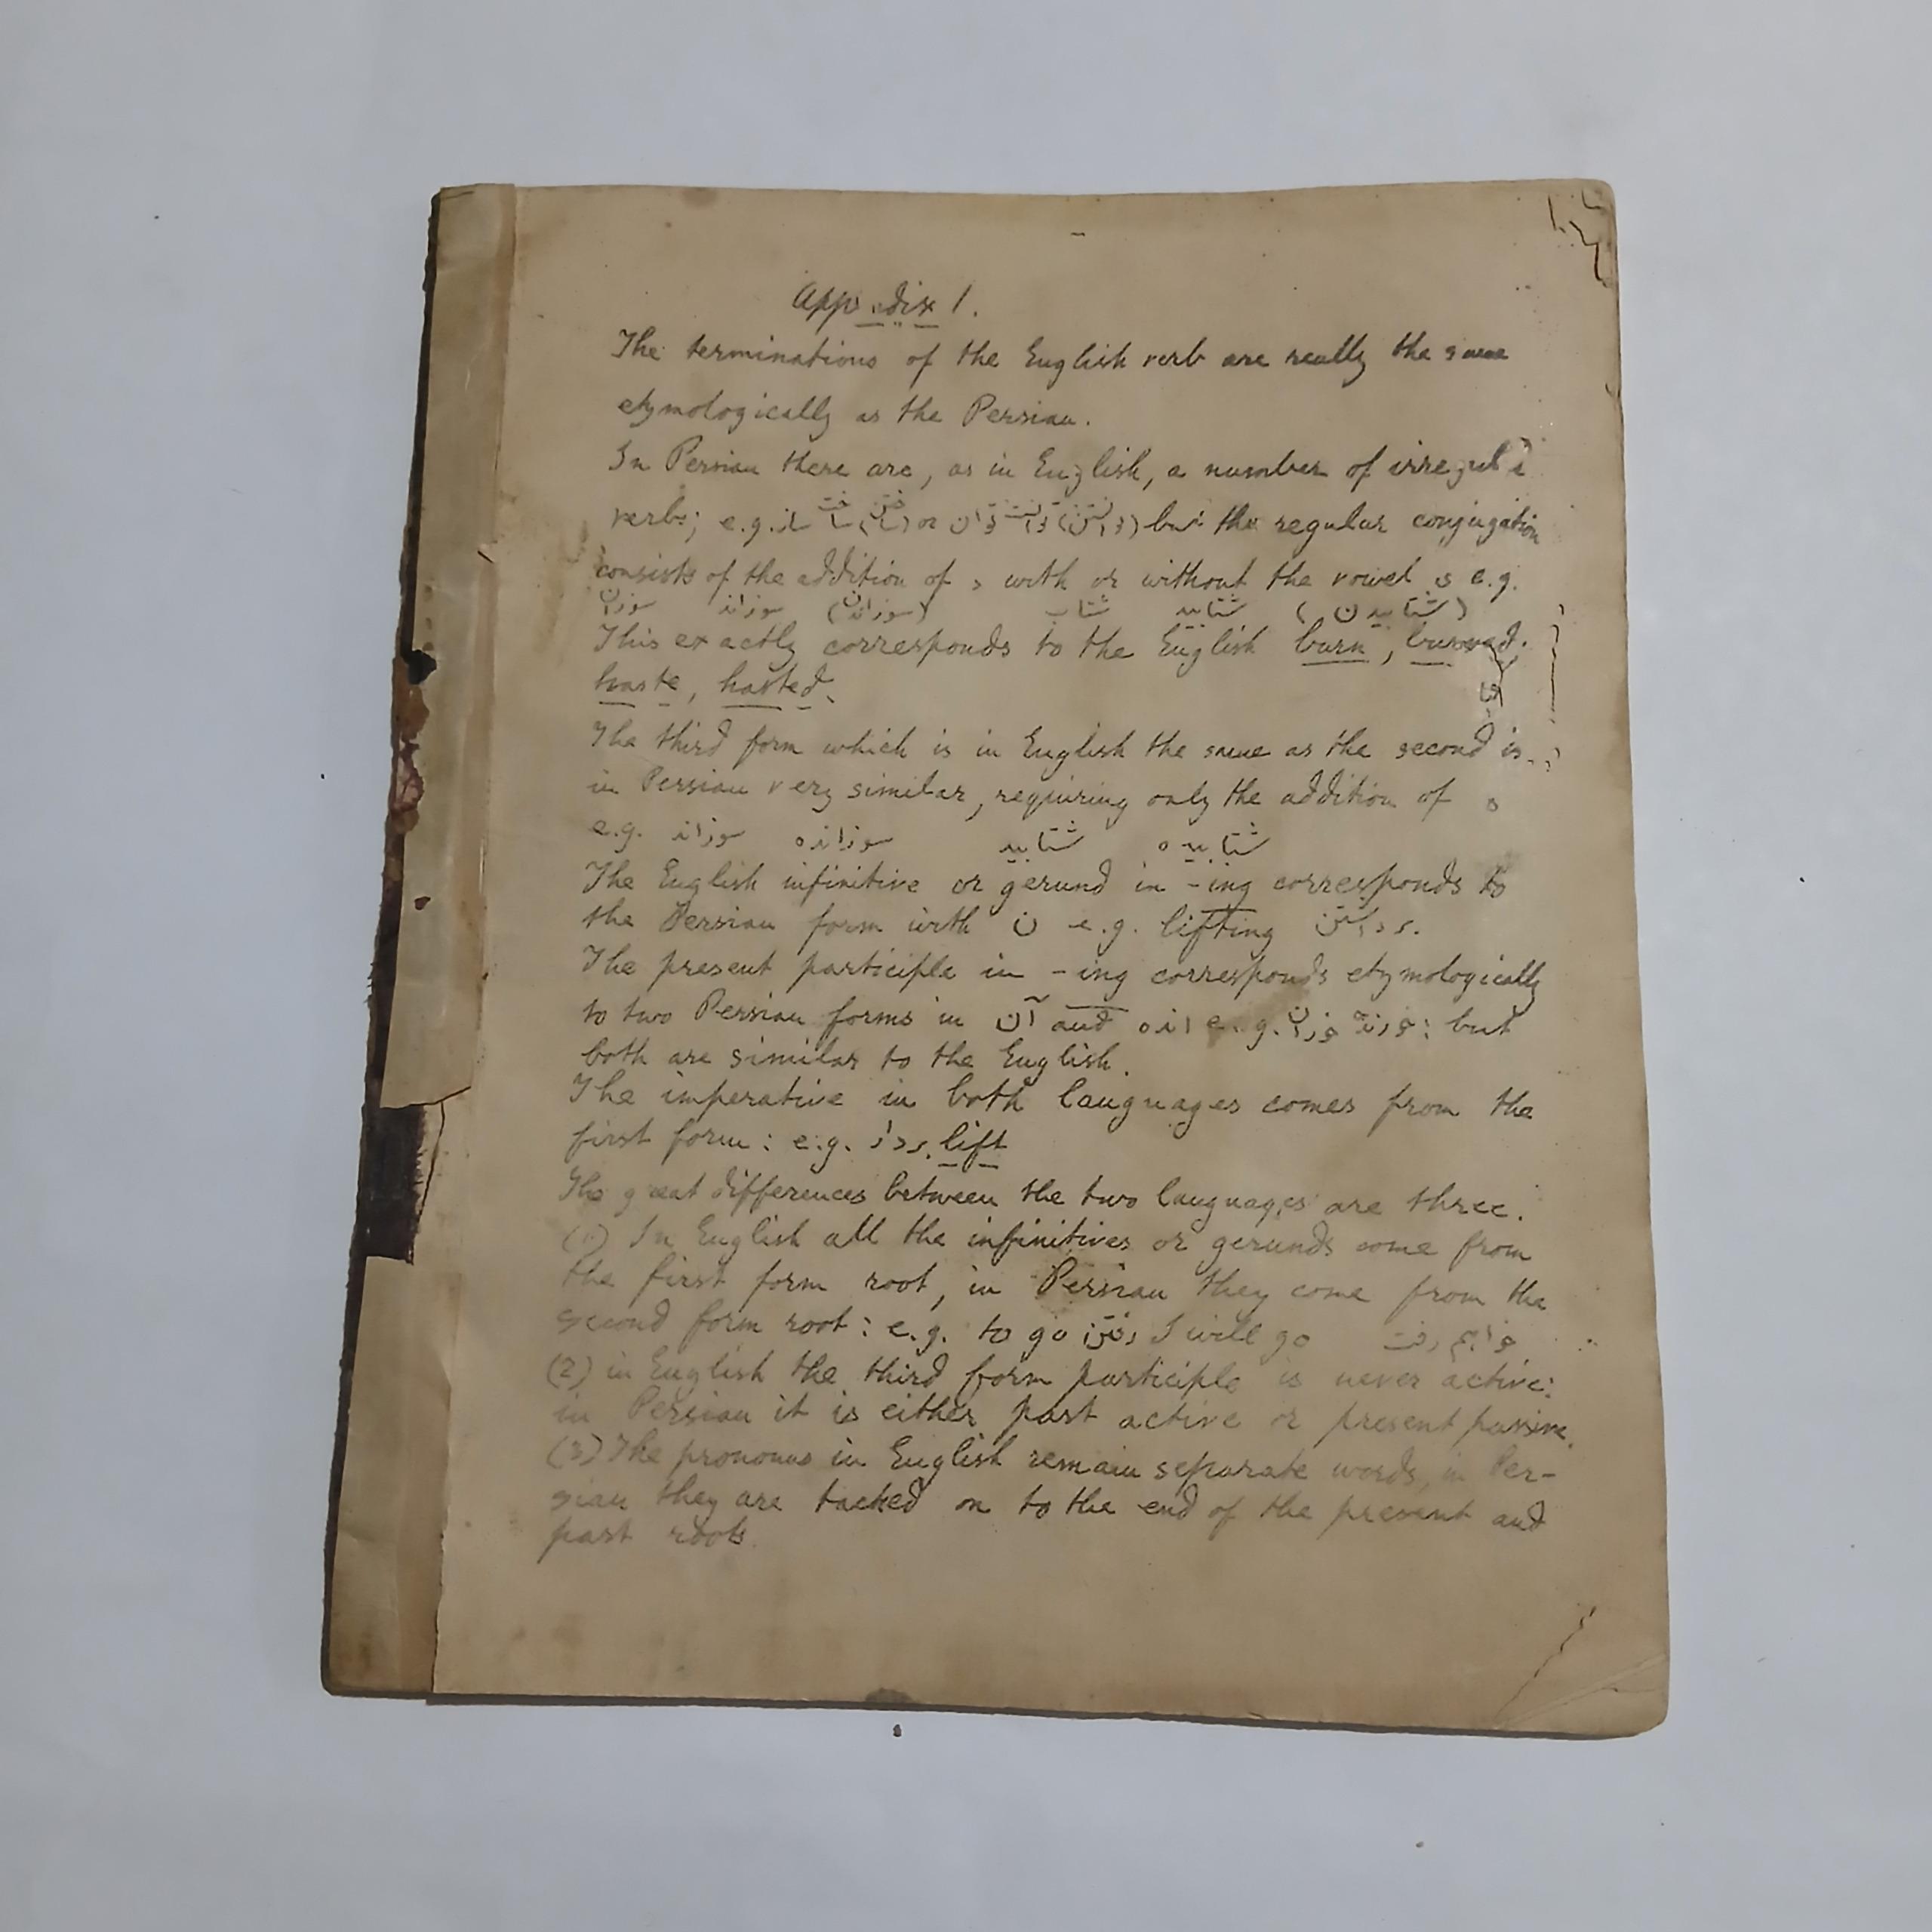 Appendix 1.
The terminations of the English verb are really the same
etymologically as the Persian.
In Persian there are, as in English, a number of
verbs; e.g. ساز ساخت (ساختن) or توان توانست (توانستن) but the regular conjugation
consists of the addition of د with or without the vowel ی e.g.
سوزان سوزاند (سوزاندن) شتاب شتابید (شتابیدن)
This exactly corresponds to the English burn, burned;
haste, hasted.
The third form which is in English the same as the second is
in Persian very similar, requiring only the addition of ه
e.g. سوزاند سوزانده شتابید شتابیده
The English infinitive or gerund in -ing corresponds to
the Persian form with ن e.g. lifting
The present participle in -ing corresponds etymologically
to two Persian forms in آن and انده e.g. : but
both are similar to the English.
The imperative in both languages comes from the
first form: e.g. lift
The great differences between the two languages are three.
(1) In English all the infinitives or gerunds come from
the first form root, in Persian they come from the
second form root: e.g. to go رفتن I will go خواهم رفت
(2) in English the third form participle is never active:
in Persian it is either past active or present passive.
(3) The pronouns in English remain separate words, in Per-
sian they are tacked on to the end of the present and
past roots.